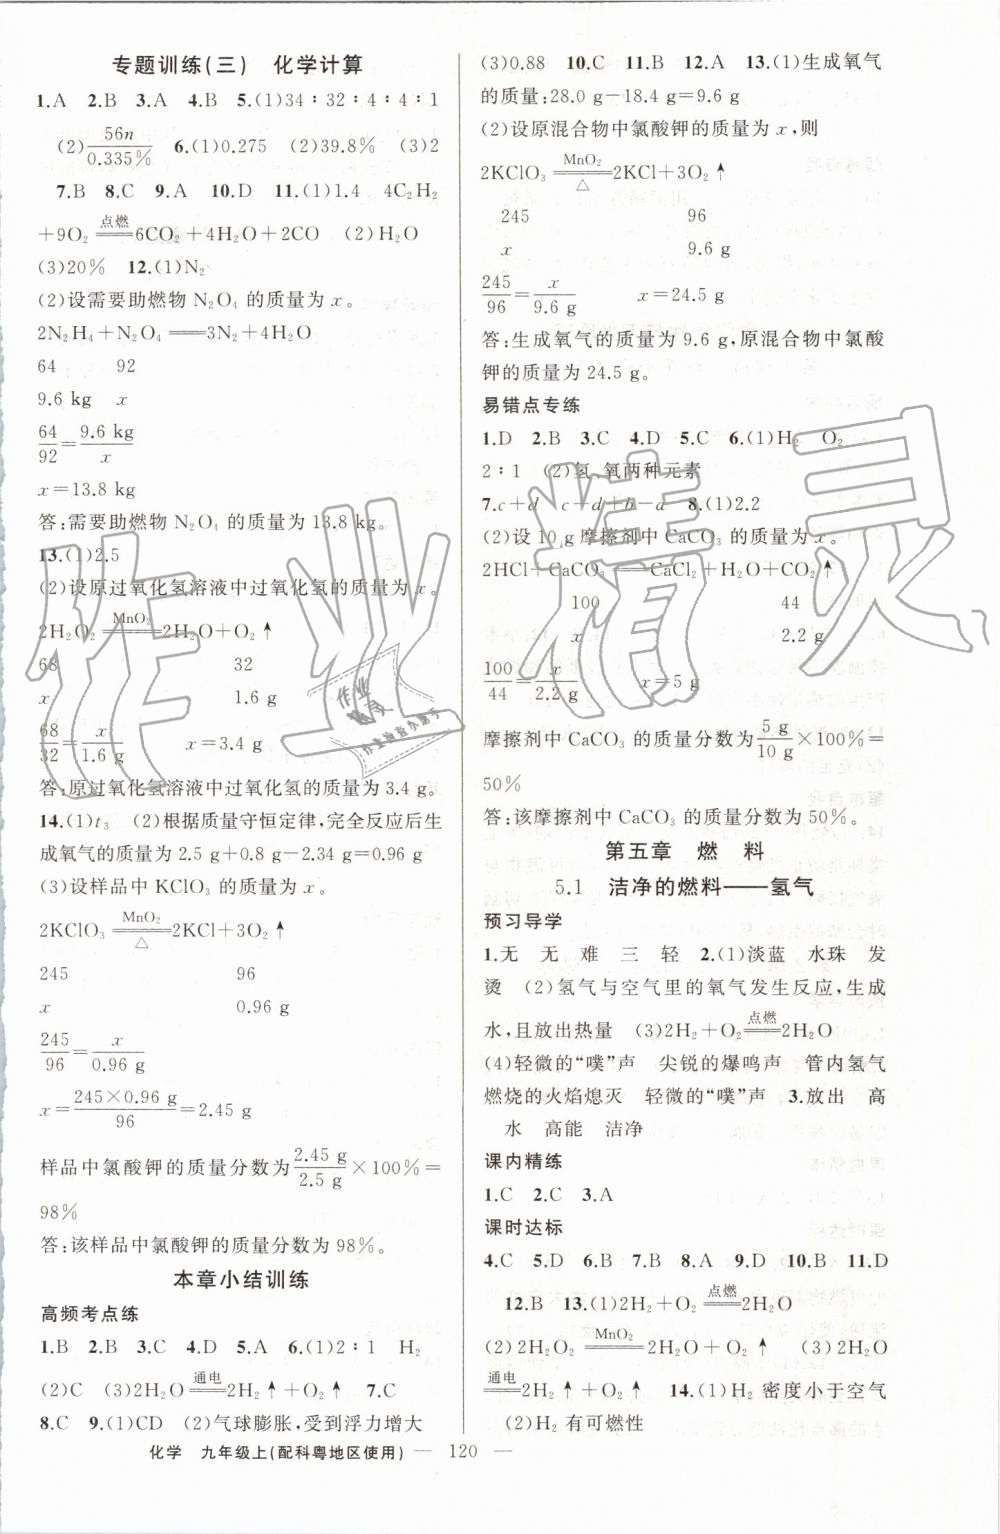 专题训练(三)　化学计算
1.A　2.B　3.A　4.B　5.(1)34∶32∶4∶4∶1
(2)56n/0.335%　6.(1)0.275　(2)39.8%　(3)2
7.B　8.C　9.A　10.D　11.(1)1.4　4C₂H₂
+9O₂ =点燃= 6CO₂+4H₂O+2CO　(2)H₂O
(3)20%　12.(1)N₂
(2)设需要助燃物 N₂O₄ 的质量为 x。
2N₂H₄+N₂O₄══3N₂+4H₂O
64　92
9.6 kg　x
64/92=9.6 kg/x
x=13.8 kg
答:需要助燃物 N₂O₄ 的质量为 13.8 kg。
13.(1)2.5
(2)设原过氧化氢溶液中过氧化氢的质量为 x。
2H₂O₂ =MnO₂= 2H₂O+O₂↑
68　32
x　1.6 g
68/32=x/1.6 g　x=3.4 g
答:原过氧化氢溶液中过氧化氢的质量为 3.4 g。
14.(1)t₃　(2)根据质量守恒定律,完全反应后生
成氧气的质量为 2.5 g+0.8 g-2.34 g=0.96 g
(3)设样品中 KClO₃ 的质量为 x。
2KClO₃ =MnO₂/△= 2KCl+3O₂↑
245　96
x　0.96 g
245/96=x/0.96 g
x=245×0.96 g/96=2.45 g
样品中氯酸钾的质量分数为2.45 g/2.5 g×100%=
98%
答:该样品中氯酸钾的质量分数为 98%。
本章小结训练
高频考点练
1.B　2.B　3.C　4.D　5.A　6.(1)2∶1　H₂
(2)C　(3)2H₂O =通电= 2H₂↑+O₂↑　7.C
8.C　9.(1)CD　(2)气球膨胀,受到浮力增大
(3)0.88　10.C　11.B　12.A　13.(1)生成氧气
的质量:28.0 g-18.4 g=9.6 g
(2)设原混合物中氯酸钾的质量为 x,则
2KClO₃ =MnO₂/△= 2KCl+3O₂↑
245　96
x　9.6 g
245/96=x/9.6 g　x=24.5 g
答:生成氧气的质量为 9.6 g,原混合物中氯酸
钾的质量为 24.5 g。
易错点专练
1.D　2.B　3.C　4.D　5.C　6.(1)H₂　O₂
2∶1　(2)氢、氧两种元素
7.c+d　c+d+b-a　8.(1)2.2
(2)设 10 g 摩擦剂中 CaCO₃ 的质量为 x。
2HCl+CaCO₃══CaCl₂+H₂O+CO₂↑
100　44
x　2.2 g
100/44=x/2.2 g　x=5 g
摩擦剂中 CaCO₃ 的质量分数为5 g/10 g×100%=
50%
答:该摩擦剂中 CaCO₃ 的质量分数为 50%。
第五章　燃　料
5.1　洁净的燃料——氢气
预习导学
1.无　无　难　三　轻　2.(1)淡蓝　水珠　发
烫　(2)氢气与空气里的氧气发生反应,生成
水,且放出热量　(3)2H₂+O₂ =点燃= 2H₂O
(4)轻微的“噗”声　尖锐的爆鸣声　管内氢气
燃烧的火焰熄灭　轻微的“噗”声　3.放出　高
水　高能　洁净
课内精练
1.C　2.C　3.A
课时达标
4.C　5.D　6.B　7.B　8.A　9.D　10.B　11.D
12.B　13.(1)2H₂+O₂ =点燃= 2H₂O
(2)2H₂O₂ =MnO₂= 2H₂O+O₂↑　(3)2H₂O
=通电= 2H₂↑+O₂↑　14.(1)H₂ 密度小于空气
(2)H₂ 有可燃性
化学　九年级上(配科粤地区使用)　— 120 —
作业精灵
作业
精灵